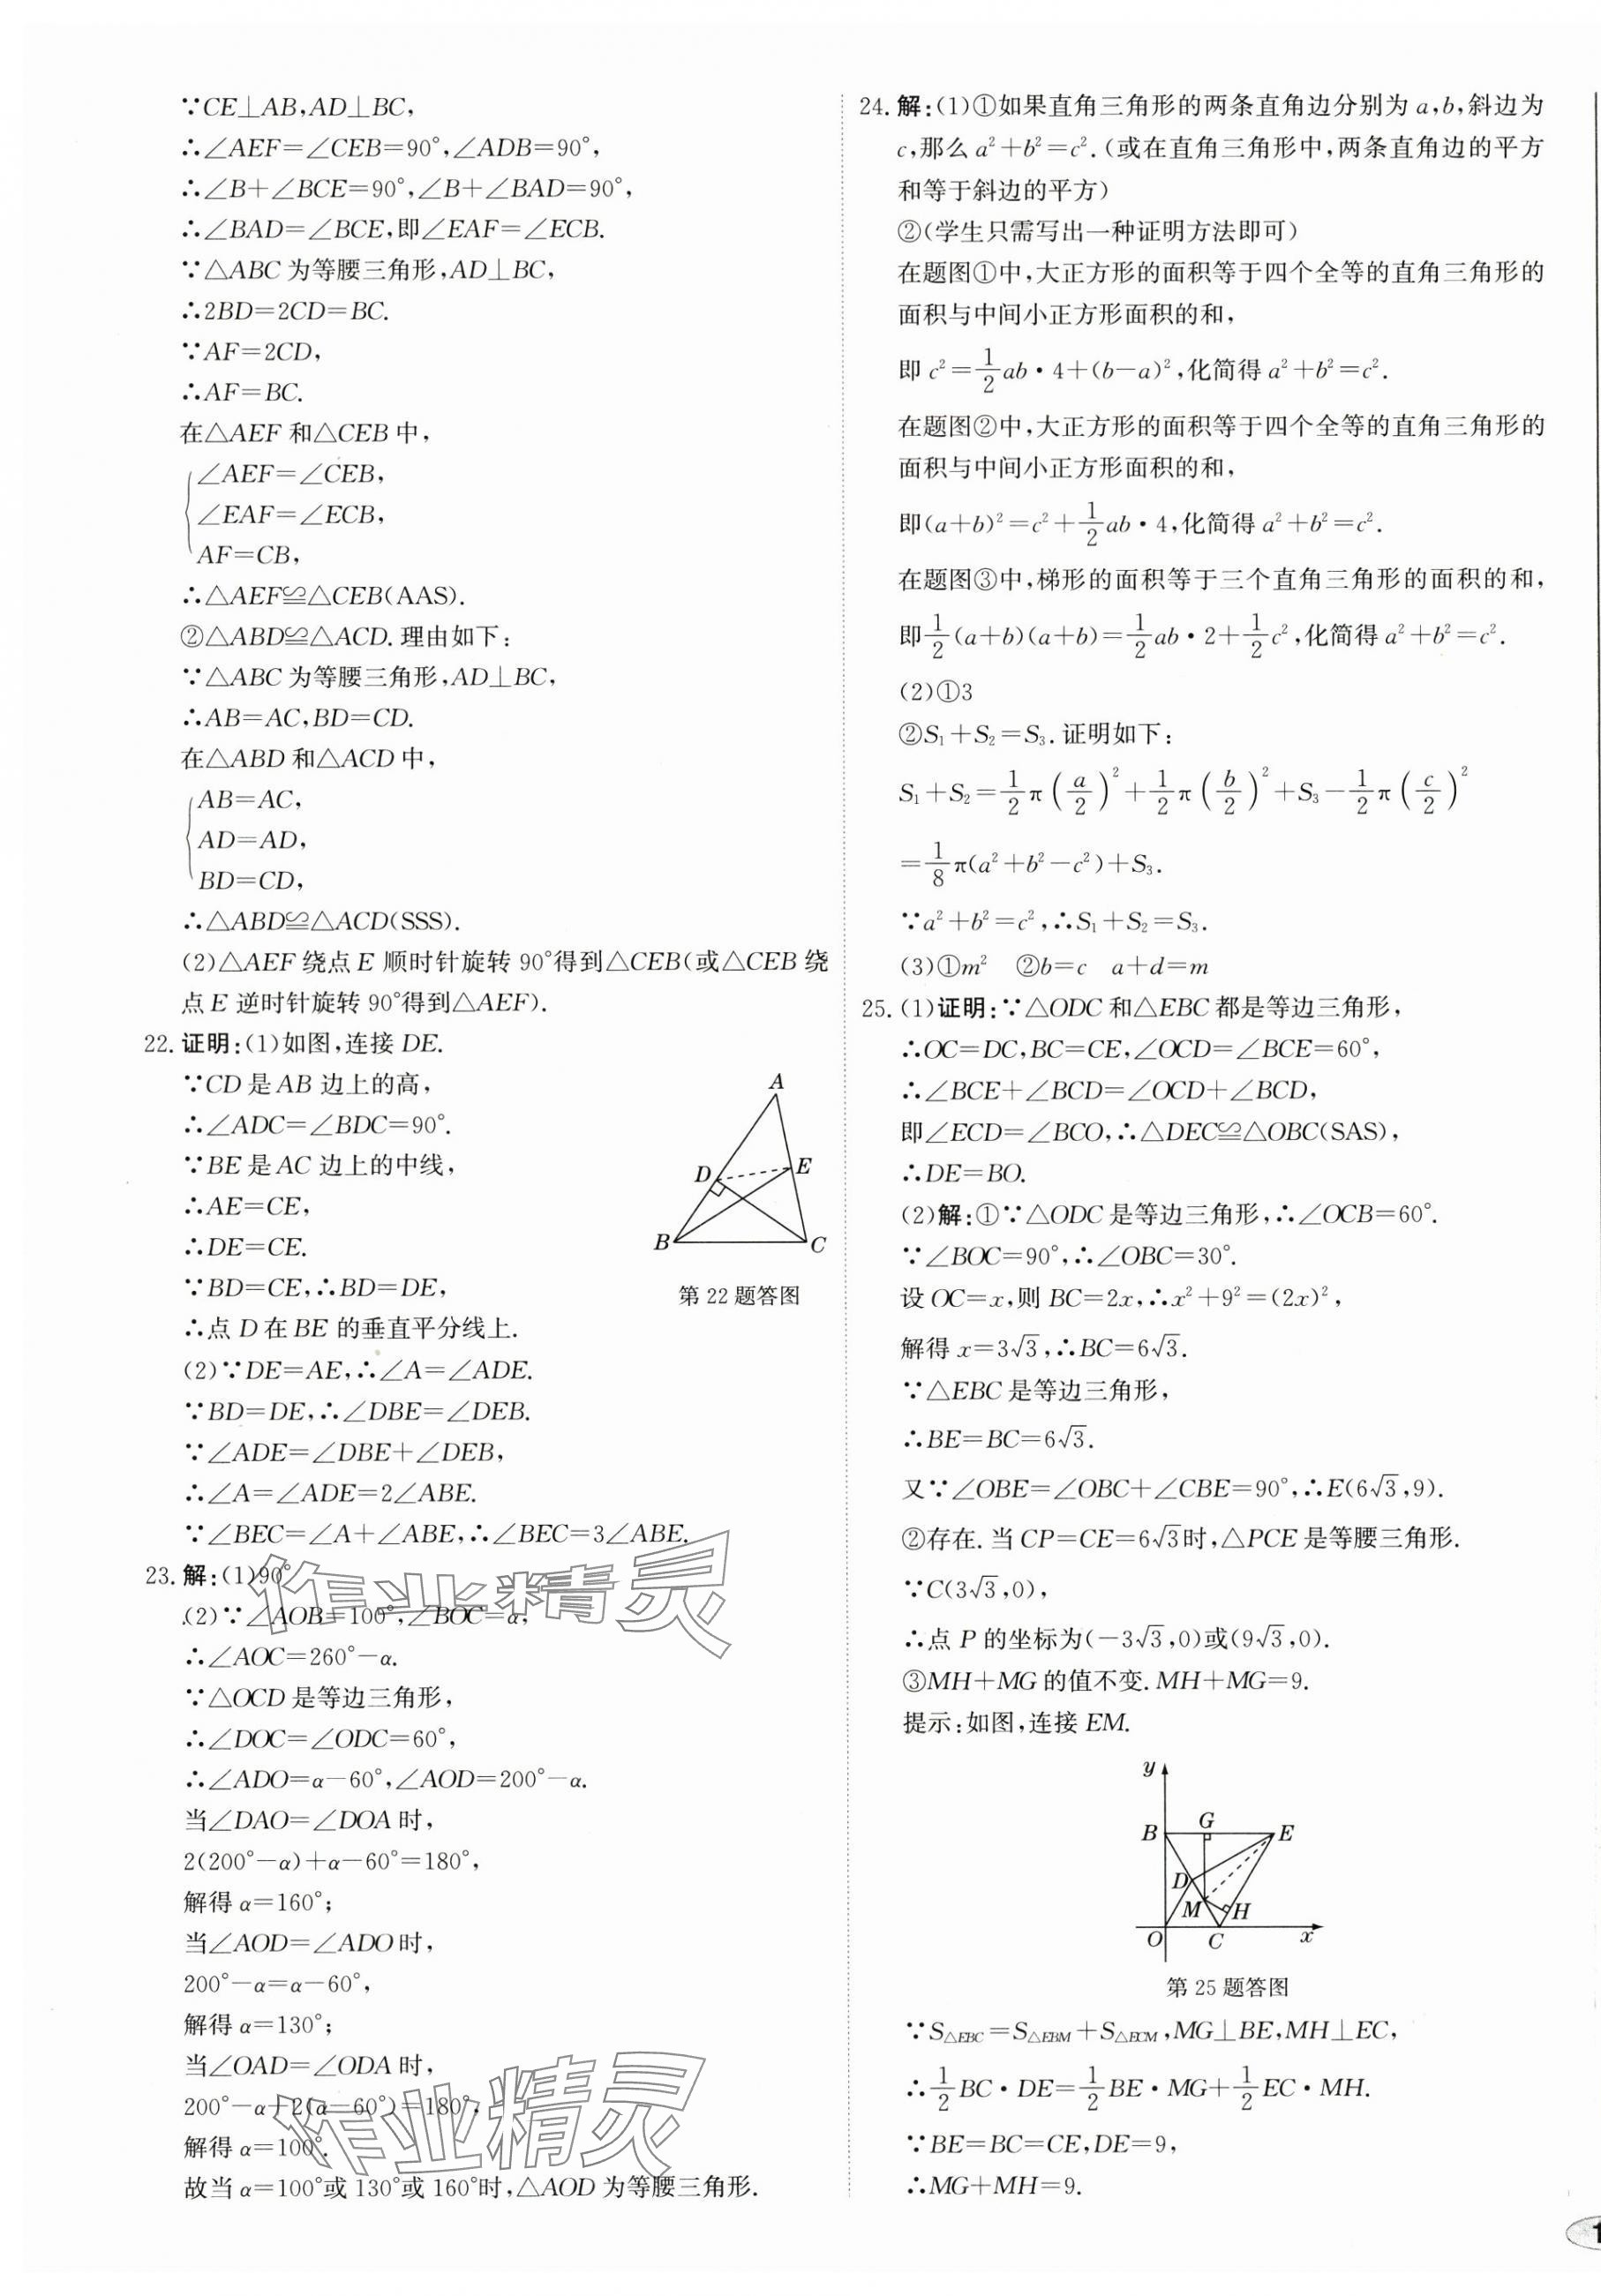 ∵CE⊥AB,AD⊥BC,
∴∠AEF=∠CEB=90°,∠ADB=90°,
∴∠B+∠BCE=90°,∠B+∠BAD=90°,
∴∠BAD=∠BCE,即∠EAF=∠ECB.
∵△ABC为等腰三角形,AD⊥BC,
∴2BD=2CD=BC.
∵AF=2CD,
∴AF=BC.
在△AEF和△CEB中,
∠AEF=∠CEB,
∠EAF=∠ECB,
AF=CB,
∴△AEF≌△CEB(AAS).
②△ABD≌△ACD.理由如下:
∵△ABC为等腰三角形,AD⊥BC,
∴AB=AC,BD=CD.
在△ABD和△ACD中,
AB=AC,
AD=AD,
BD=CD,
∴△ABD≌△ACD(SSS).
(2)△AEF绕点E顺时针旋转90°得到△CEB(或△CEB绕
点E逆时针旋转90°得到△AEF).
22.证明:(1)如图,连接DE.
∵CD是AB边上的高,
∴∠ADC=∠BDC=90°.
∵BE是AC边上的中线,
∴AE=CE,
∴DE=CE.
∵BD=CE,∴BD=DE,
∴点D在BE的垂直平分线上.
A
D
E
B
C
第22题答图
(2)∵DE=AE,∴∠A=∠ADE.
∵BD=DE,∴∠DBE=∠DEB.
∵∠ADE=∠DBE+∠DEB,
∴∠A=∠ADE=2∠ABE.
∵∠BEC=∠A+∠ABE,∴∠BEC=3∠ABE.
23.解:(1)90°
(2)∵∠AOB=100°,∠BOC=α,
∴∠AOC=260°-α.
∵△OCD是等边三角形,
∴∠DOC=∠ODC=60°,
∴∠ADO=α-60°,∠AOD=200°-α.
当∠DAO=∠DOA时,
2(200°-α)+α-60°=180°,
解得α=160°;
当∠AOD=∠ADO时,
200°-α=α-60°,
解得α=130°;
当∠OAD=∠ODA时,
200°-α+2(α-60°)=180°,
解得α=100°.
故当α=100°或130°或160°时,△AOD为等腰三角形.
作业精灵
作业精灵
24.解:(1)①如果直角三角形的两条直角边分别为a,b,斜边为
c,那么a²+b²=c².(或在直角三角形中,两条直角边的平方
和等于斜边的平方)
②(学生只需写出一种证明方法即可)
在题图①中,大正方形的面积等于四个全等的直角三角形的
面积与中间小正方形面积的和,
即c²=1/2ab·4+(b-a)²,化简得a²+b²=c².
在题图②中,大正方形的面积等于四个全等的直角三角形的
面积与中间小正方形面积的和,
即(a+b)²=c²+1/2ab·4,化简得a²+b²=c².
在题图③中,梯形的面积等于三个直角三角形的面积的和,
即1/2(a+b)(a+b)=1/2ab·2+1/2c²,化简得a²+b²=c².
(2)①3
②S₁+S₂=S₃.证明如下:
S₁+S₂=1/2π(a/2)²+1/2π(b/2)²+S₃-1/2π(c/2)²
=1/8π(a²+b²-c²)+S₃.
∵a²+b²=c²,∴S₁+S₂=S₃.
(3)①m² ②b=c a+d=m
25.(1)证明:∵△ODC和△EBC都是等边三角形,
∴OC=DC,BC=CE,∠OCD=∠BCE=60°,
∴∠BCE+∠BCD=∠OCD+∠BCD,
即∠ECD=∠BCO,∴△DEC≌△OBC(SAS),
∴DE=BO.
(2)解:①∵△ODC是等边三角形,∴∠OCB=60°.
∵∠BOC=90°,∴∠OBC=30°.
设OC=x,则BC=2x,∴x²+9²=(2x)²,
解得x=3√3,∴BC=6√3.
∵△EBC是等边三角形,
∴BE=BC=6√3.
又∵∠OBE=∠OBC+∠CBE=90°,∴E(6√3,9).
②存在.当CP=CE=6√3时,△PCE是等腰三角形.
∵C(3√3,0),
∴点P的坐标为(-3√3,0)或(9√3,0).
③MH+MG的值不变.MH+MG=9.
提示:如图,连接EM.
y
B
G
E
D
M
H
O
C
x
第25题答图
∵S△EBC=S△EBM+S△ECM,MG⊥BE,MH⊥EC,
∴1/2BC·DE=1/2BE·MG+1/2EC·MH.
∵BE=BC=CE,DE=9,
∴MG+MH=9.